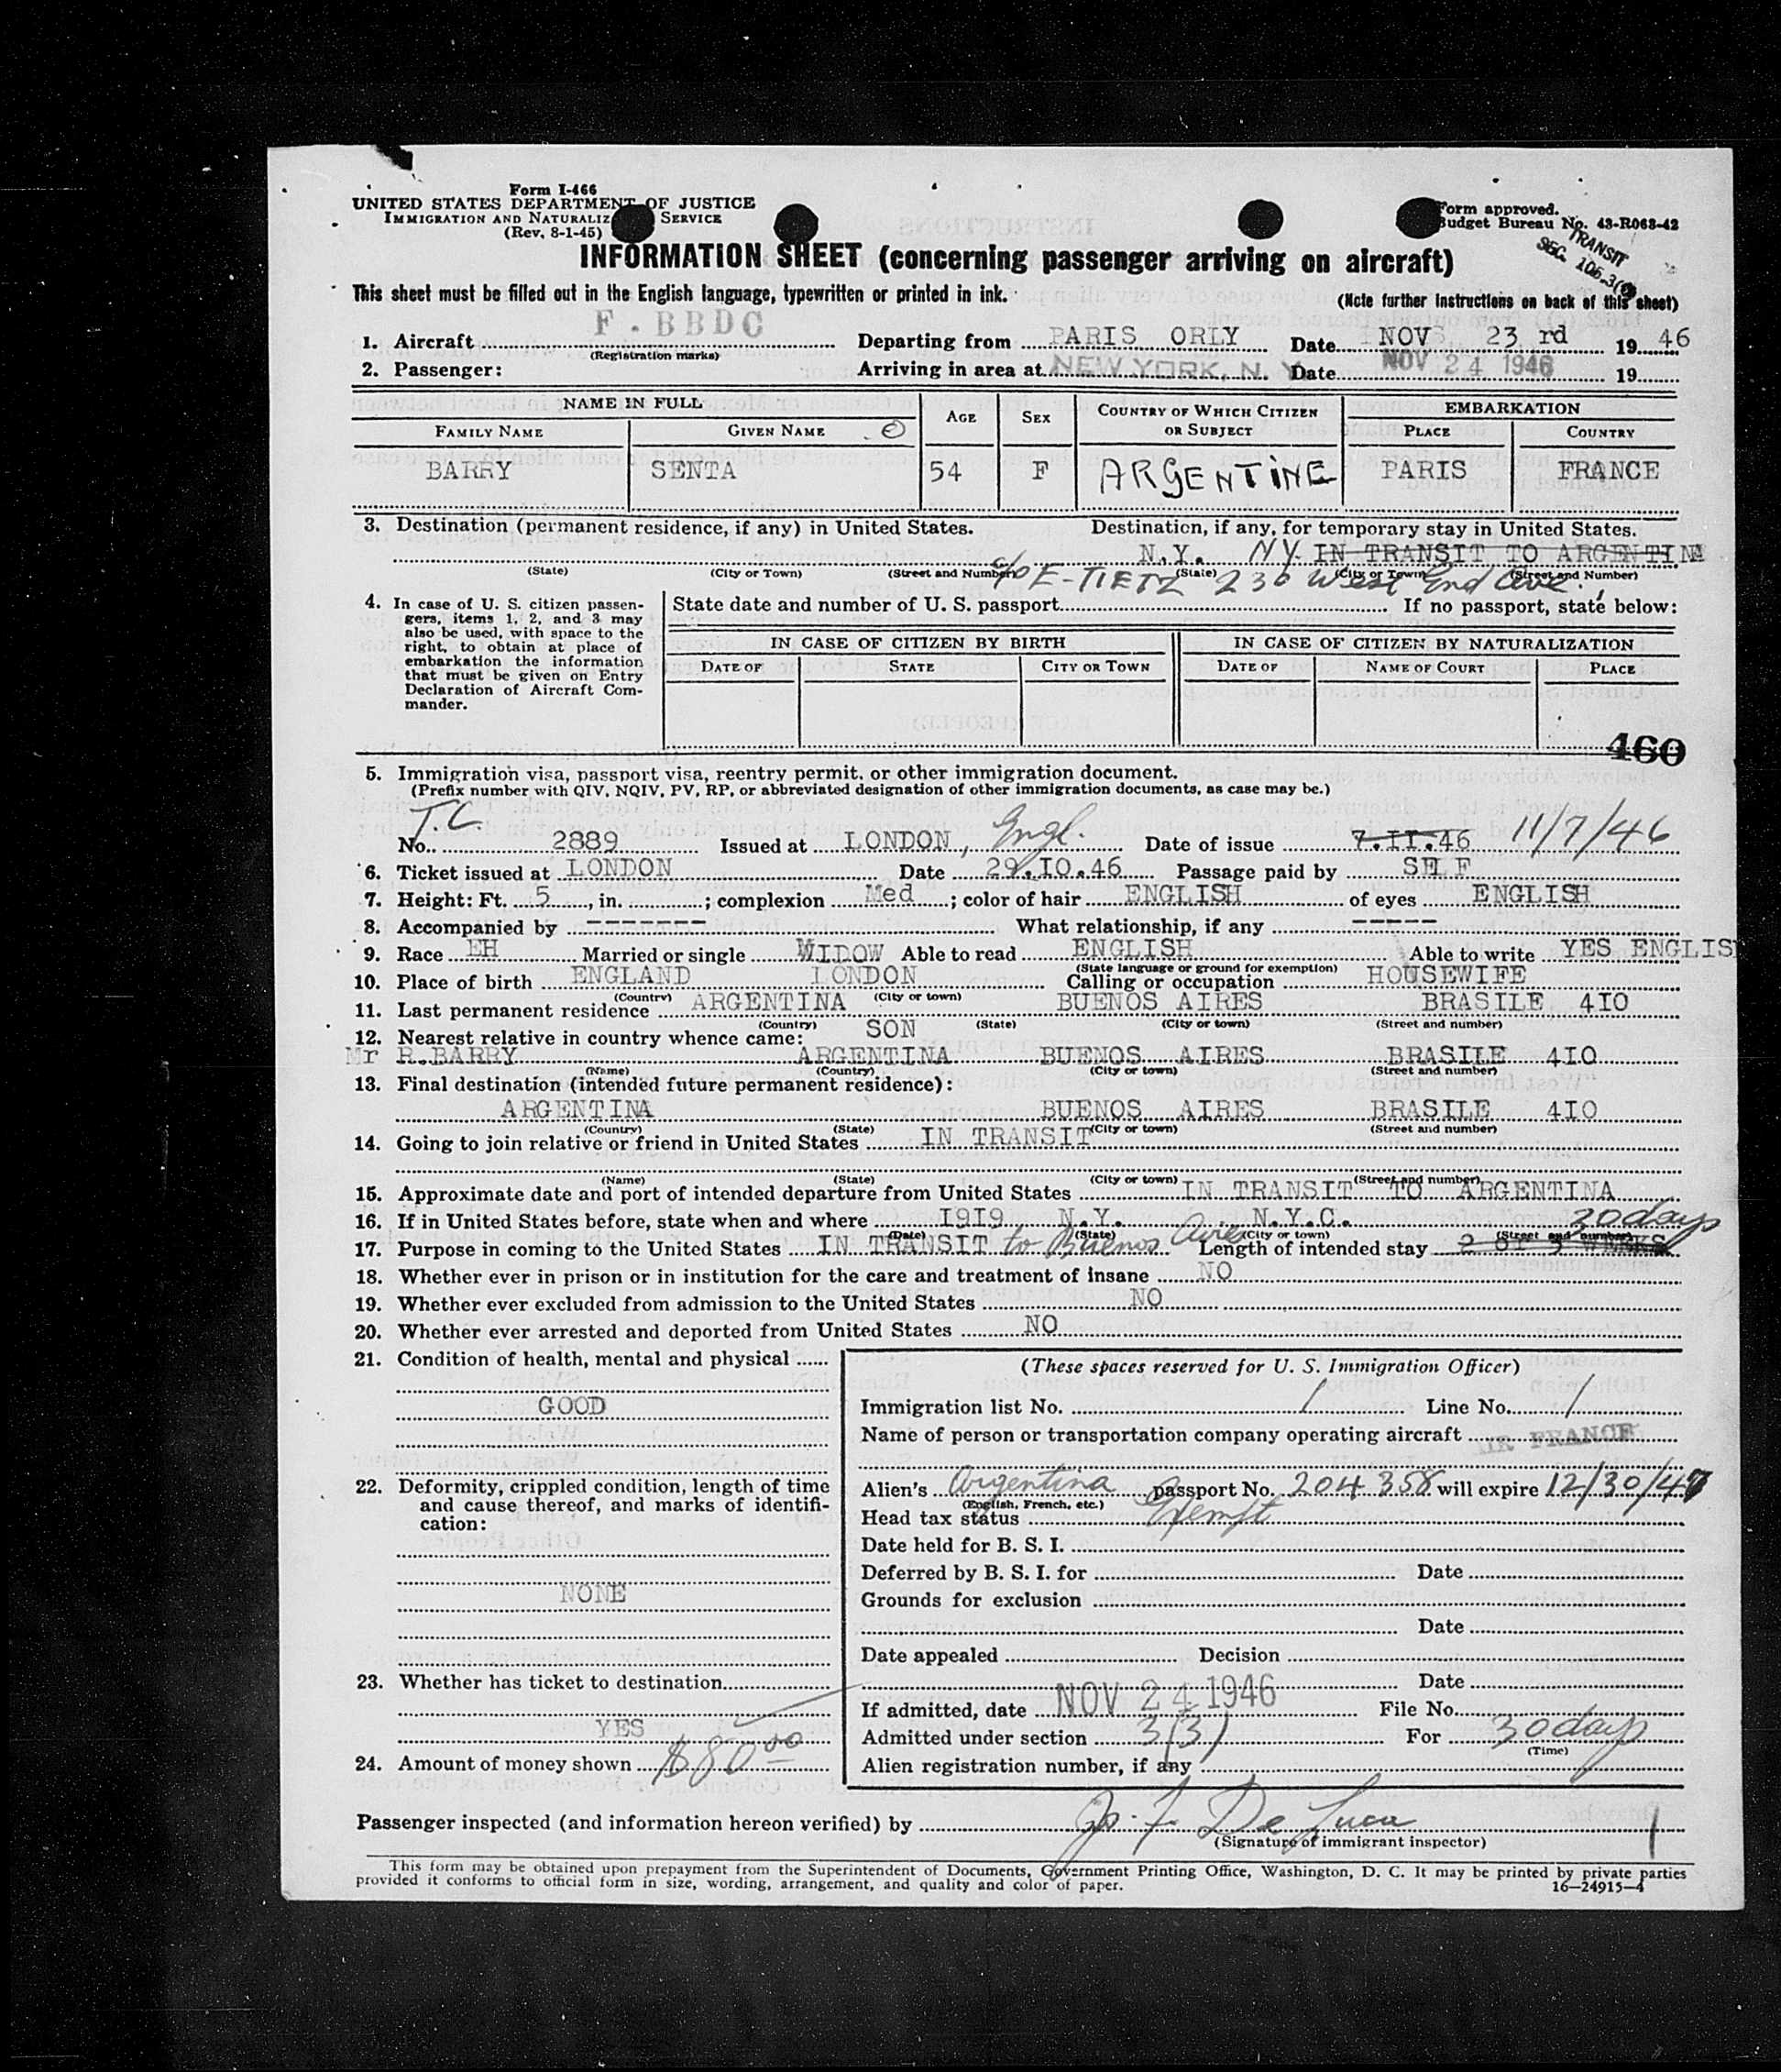 Form I-466
UNITED STATES DEPARTMENT OF JUSTICE
IMMIGRATION AND NATURALIZ SERVICE
(Rev. 8-1-45)
Form approved.
Budget Bureau No. 43-R063-42
TRANSIT
SEC. 106.3(
INFORMATION SHEET (concerning passenger arriving on aircraft)
This sheet must be filled out in the English language, typewritten or printed in ink.
(Note further instructions on back of this sheet)
F.BBDC
1. Aircraft Departing from PARIS ORLY Date NOV 23 rd 1946
(Registration marks)
2. Passenger: Arriving in area at NEW YORK, N. Y. Date NOV 24 1946 19
NAME IN FULL AGE SEX COUNTRY OF WHICH CITIZEN OR SUBJECT EMBARKATION
FAMILY NAME GIVEN NAME PLACE COUNTRY
BARRY SENTA 54 F ARGENTINE PARIS FRANCE
3. Destination (permanent residence, if any) in United States. Destination, if any, for temporary stay in United States.
N.Y. N.Y. IN TRANSIT TO ARGENTINA
(State) (City or Town) (Street and Number) (State) (City or Town) (Street and Number)
c/o E-TIETZ 230 West End Ave.
4. In case of U. S. citizen passengers, items 1, 2, and 3 may also be used, with space to the right, to obtain at place of embarkation the information that must be given on Entry Declaration of Aircraft Commander.
State date and number of U. S. passport If no passport, state below:
IN CASE OF CITIZEN BY BIRTH IN CASE OF CITIZEN BY NATURALIZATION
DATE OF STATE CITY OR TOWN DATE OF NAME OF COURT PLACE
460
5. Immigration visa, passport visa, reentry permit, or other immigration document.
(Prefix number with QIV, NQIV, PV, RP, or abbreviated designation of other immigration documents, as case may be.)
T.C.
No. 2889 Issued at LONDON, Engl. Date of issue 7.II.46 11/7/46
6. Ticket issued at LONDON Date 29.IO.46 Passage paid by SELF
7. Height: Ft. 5, in. ; complexion Med ; color of hair ENGLISH of eyes ENGLISH
8. Accompanied by ------- What relationship, if any -----
9. Race EH Married or single WIDOW Able to read ENGLISH Able to write YES ENGLIS
(State language or ground for exemption)
10. Place of birth ENGLAND LONDON Calling or occupation HOUSEWIFE
(Country) (City or town)
11. Last permanent residence ARGENTINA BUENOS AIRES BRASILE 4IO
(Country) (State) (City or town) (Street and number)
12. Nearest relative in country whence came: SON
Mr R.BARRY ARGENTINA BUENOS AIRES BRASILE 4IO
(Name) (Country) (City or town) (Street and number)
13. Final destination (intended future permanent residence):
ARGENTINA BUENOS AIRES BRASILE 4IO
(Country) (State) (City or town) (Street and number)
14. Going to join relative or friend in United States IN TRANSIT
(Name) (State) (City or town) (Street and number)
15. Approximate date and port of intended departure from United States IN TRANSIT TO ARGENTINA
16. If in United States before, state when and where I9I9 N.Y. N.Y.C.
(Date) (State) (City or town) (Street and number)
30 days
17. Purpose in coming to the United States IN TRANSIT to Buenos Aires Length of intended stay 2 or 3 WEEKS
18. Whether ever in prison or in institution for the care and treatment of insane NO
19. Whether ever excluded from admission to the United States NO
20. Whether ever arrested and deported from United States NO
21. Condition of health, mental and physical
GOOD
22. Deformity, crippled condition, length of time and cause thereof, and marks of identification:
NONE
23. Whether has ticket to destination
YES
24. Amount of money shown $80.00
(These spaces reserved for U. S. Immigration Officer)
Immigration list No. 1 Line No. 1
Name of person or transportation company operating aircraft AIR FRANCE
Alien's Argentina passport No. 204 358 will expire 12/30/47
(English, French, etc.)
Head tax status Exempt
Date held for B. S. I.
Deferred by B. S. I. for Date
Grounds for exclusion
Date
Date appealed Decision
Date
If admitted, date NOV 24 1946 File No.
Admitted under section 3(3) For 30 days
(Time)
Alien registration number, if any
Passenger inspected (and information hereon verified) by Jo. F. De Luca
(Signature of immigrant inspector)
This form may be obtained upon prepayment from the Superintendent of Documents, Government Printing Office, Washington, D. C. It may be printed by private parties
provided it conforms to official form in size, wording, arrangement, and quality and color of paper.
16—24915-4